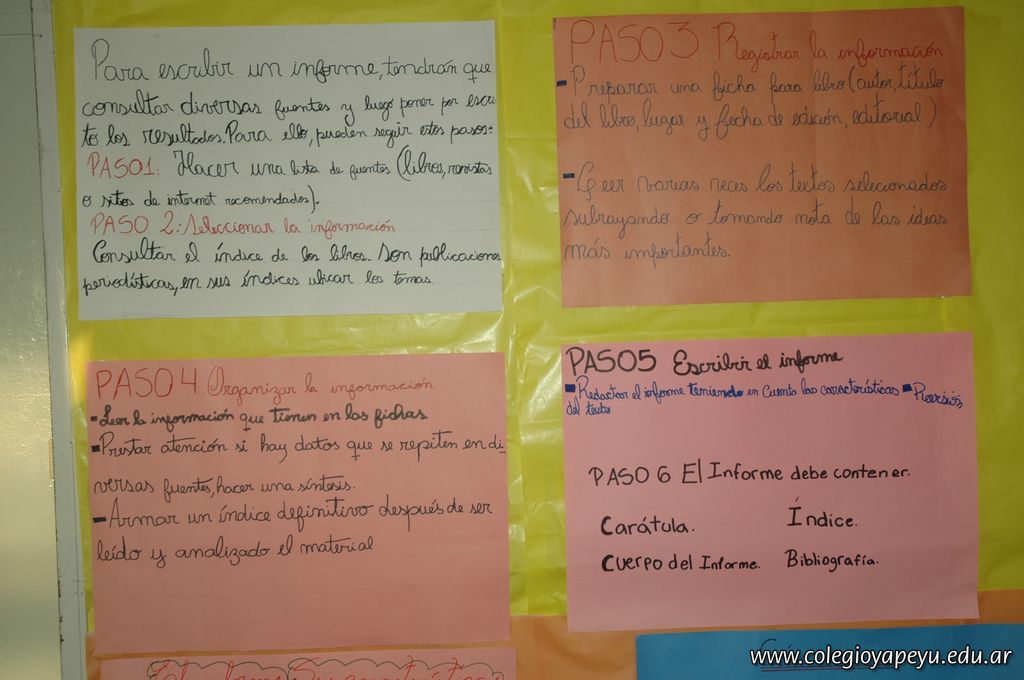 Para escribir un informe, tendrán que
consultar diversas fuentes y luego poner por escri
to los resultados. Para ello, pueden seguir estos pasos:
PASO1. Hacer una lista de fuentes (libros, revistas
o sitos de internet recomendados).
PASO 2: Seleccionar la información
Consultar el índice de los libros. Son publicaciones
periodísticas, en sus índices ubicar los temas.
PASO3. Registrar la información
- Preparar una ficha para libro (autor, título
del libro, lugar y fecha de edición, editorial)
- Leer varias veces los textos seleccionados
subrayando o tomando nota de las ideas
más importantes.
PASO4. Organizar la información
- Leer la información que tienen en las fichas.
- Prestar atención si hay datos que se repiten en di
versas fuentes, hacer una síntesis.
- Armar un índice definitivo después de ser
leído y analizado el material
PASO5 Escribir el informe
- Redactar el informe teniendo en cuenta las características - Revisión
del texto
PASO 6 El Informe debe contener.
Carátula. Índice.
Cuerpo del Informe. Bibliografía.
www.colegioyapeyu.edu.ar